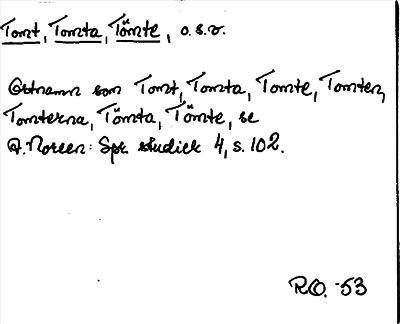 Tomt, Tomta, Tömte, o.s.v.
Ortnamn som Tomt, Tomta, Tomte, Tomten,
Tomterna, Tömta, Tömte, se
A. Noreen: Spr. studier 4, s. 102.
R.O. -53